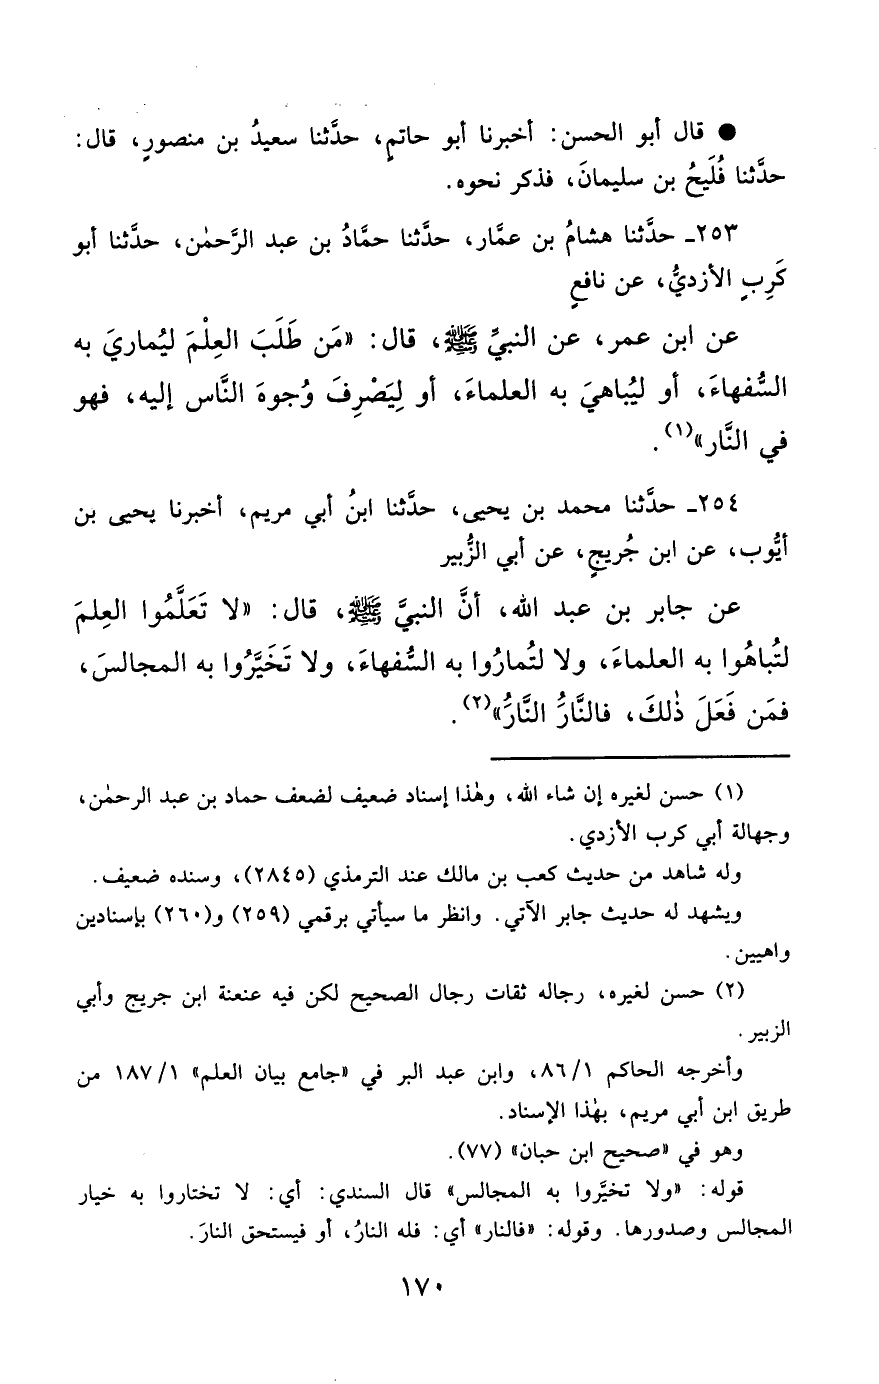 ● قال أبو الحسن: أخبرنا أبو حاتمٍ، حدَّثنا سعيدُ بن منصورٍ، قال:
حدَّثنا فُلَيحُ بن سليمانَ، فذكر نحوه.
٢٥٣ـ حدَّثنا هشامُ بن عمَّار، حدَّثنا حمَّادُ بن عبد الرَّحمٰن، حدَّثنا أبو
كَرِبٍ الأزديُّ، عن نافعٍ
عن ابن عمر، عن النبيِّ ﷺ، قال: «مَن طَلَبَ العِلْمَ ليُماريَ به
السُّفهاءَ، أو ليُباهيَ به العلماءَ، أو لِيَصْرِفَ وُجوهَ النَّاس إليه، فهو
في النَّار»(١).
٢٥٤ـ حدَّثنا محمد بن يحيى، حدَّثنا ابنُ أبي مريم، أخبرنا يحيى بن
أيُّوب، عن ابن جُريجٍ، عن أبي الزُّبير
عن جابر بن عبد الله، أنَّ النبيَّ ﷺ، قال: «لا تَعَلَّمُوا العِلمَ
لتُباهُوا به العلماءَ، ولا لتُمارُوا به السُّفهاءَ، ولا تَخَيَّرُوا به المجالسَ،
فمَن فَعَلَ ذٰلكَ، فالنَّارُ النَّارُ»(٢).
(١) حسن لغيره إن شاء الله، وهٰذا إسناد ضعيف لضعف حماد بن عبد الرحمٰن،
وجهالة أبي كرب الأزدي.
وله شاهد من حديث كعب بن مالك عند الترمذي (٢٨٤٥)، وسنده ضعيف.
ويشهد له حديث جابر الآتي. وانظر ما سيأتي برقمي (٢٥٩) و(٢٦٠) بإسنادين
واهيين.
(٢) حسن لغيره، رجاله ثقات رجال الصحيح لكن فيه عنعنة ابن جريج وأبي
الزبير.
وأخرجه الحاكم ٨٦/١، وابن عبد البر في «جامع بيان العلم» ١٨٧/١ من
طريق ابن أبي مريم، بهٰذا الإسناد.
وهو في «صحيح ابن حبان» (٧٧).
قوله: «ولا تخيَّروا به المجالس» قال السندي: أي: لا تختاروا به خيار
المجالس وصدورها. وقوله: «فالنار» أي: فله النارُ، أو فيستحق النارَ.
١٧٠